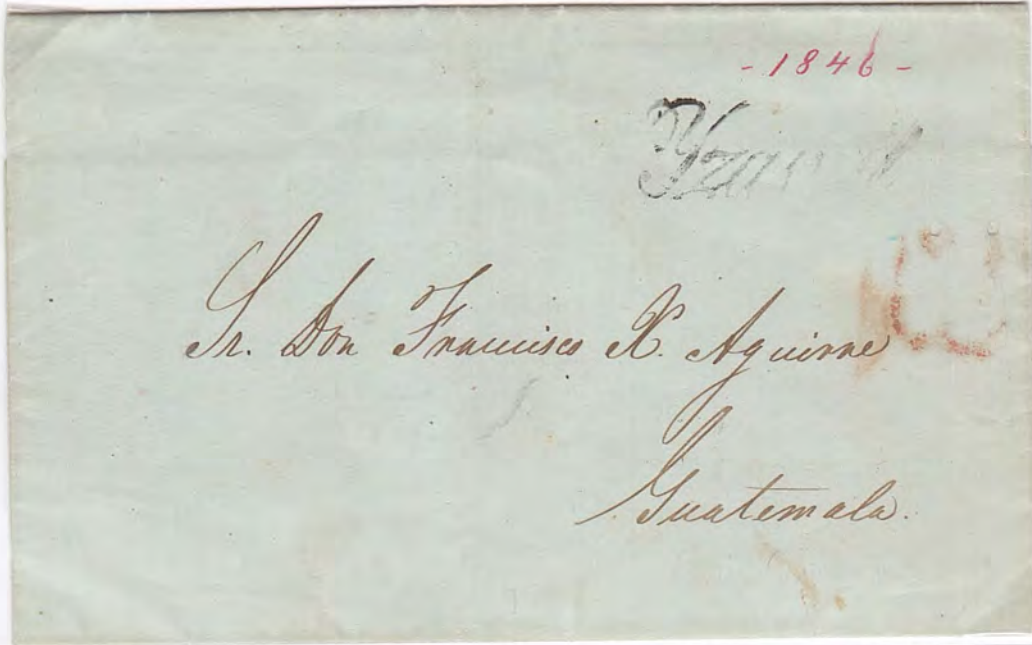 - 1846 -
Sr. Don Francisco X. Aguirre
Guatemala.